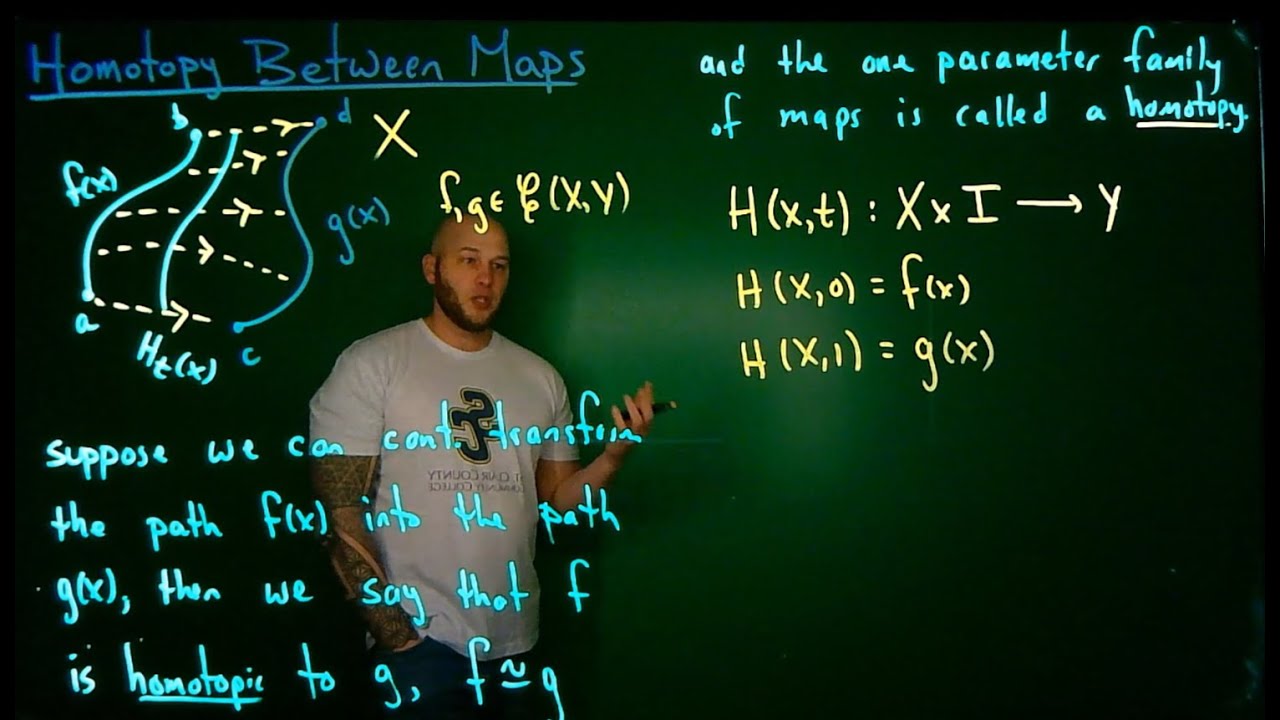 Homotopy Between Maps
b
d
X
f(x)
g(x)
a
c
H_t(x)
f,g ∈ 𝒞(X,Y)
suppose we can cont. transform
the path f(x) into the path
g(x), then we say that f
is homotopic to g, f ≃ g
and the one parameter family
of maps is called a homotopy.
H(x,t) : X × I ⟶ Y
H(x,0) = f(x)
H(x,1) = g(x)
SC
ST. CLAIR COUNTY
COMMUNITY COLLEGE